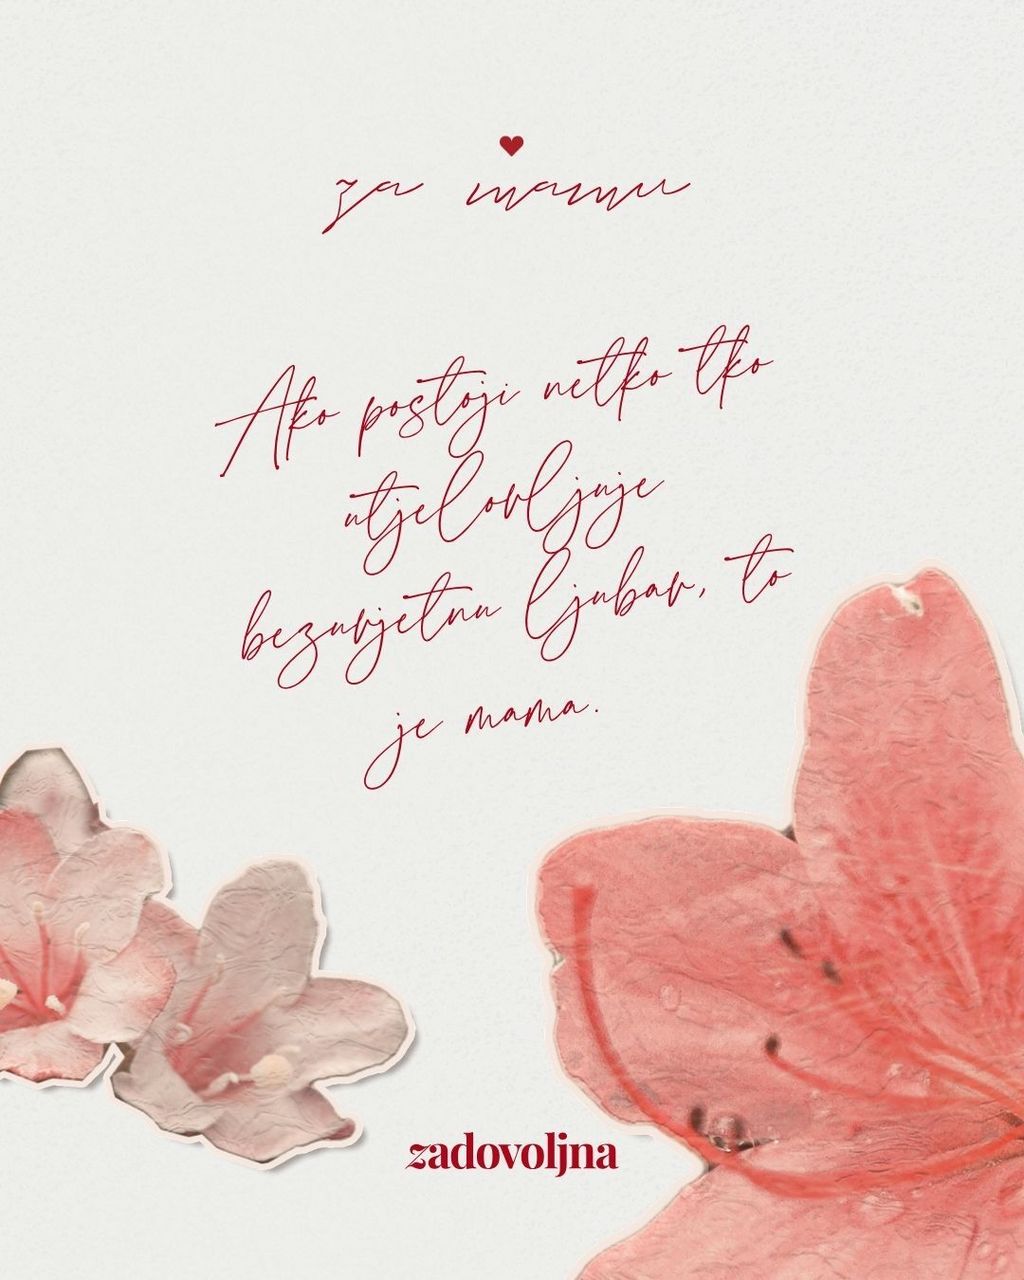 za mamu
Ako postoji netko tko
utjelovljuje
bezuvjetnu ljubav, to
je mama.
zadovoljna